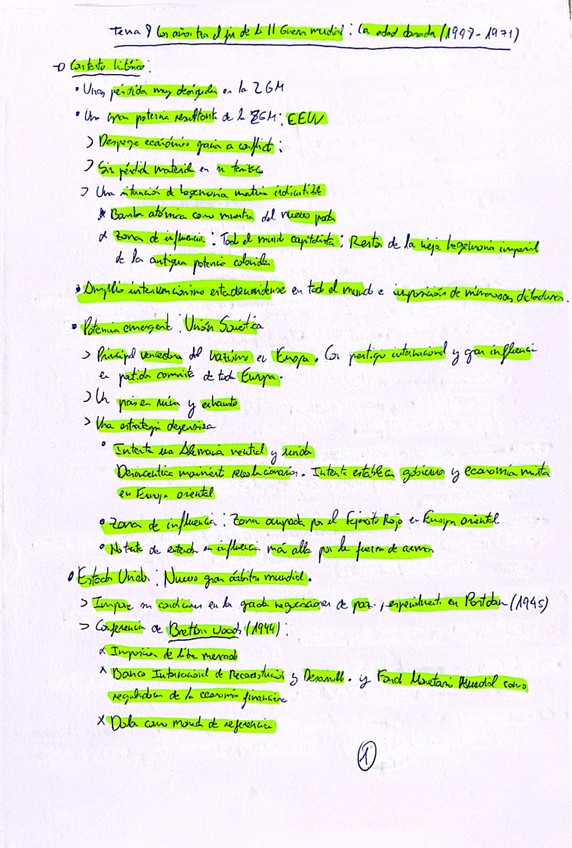 Tema 9 Los años tras el fin de la II Guerra mundial: La edad dorada (1947-1971)
→ Contexto histórico:
• Unas pérdidas muy desiguales en la 2GM
• Una gran potencia resultante de la 2GM: EEUU
> Despegue económico gracias a conflicto:
> Sin pérdida material en su territorio
> Una situación de hegemonía militar indiscutible
* Bomba atómica como muestra del nuevo poder
* Zona de influencia: Todo el mundo capitalista; Restos de la vieja hegemonía imperial
de las antiguas potencias coloniales
• Amplio intervencionismo estadounidense en todo el mundo e imposición de numerosas dictaduras.
• Potencia emergente: Unión Soviética
> Principal vencedora del nazismo en Europa. Con prestigio internacional y gran influencia
en partidos comunistas de toda Europa.
> Un país en ruina y exhausto
> Una estrategia defensiva
• Intenta una Alemania neutral y unida
movimientos revolucionarios. Intenta establecer gobiernos y economía mixta
en Europa oriental
• Zona de influencia: Zona ocupada por el Ejército Rojo en Europa oriental
• No trata de extender su influencia más allá por la fuerza de armas
• Estados Unidos: Nuevo gran árbitro mundial.
> Impone sus condiciones en las grandes negociaciones de paz, especialmente en Postdam (1945)
> Conferencia de Bretton Woods (1944):
x Imposición de libre mercado
x Banco Internacional de Reconstrucción y Desarrollo. y Fondo Monetario Mundial como
reguladores de la economía financiera
x Dólar como moneda de referencia
1